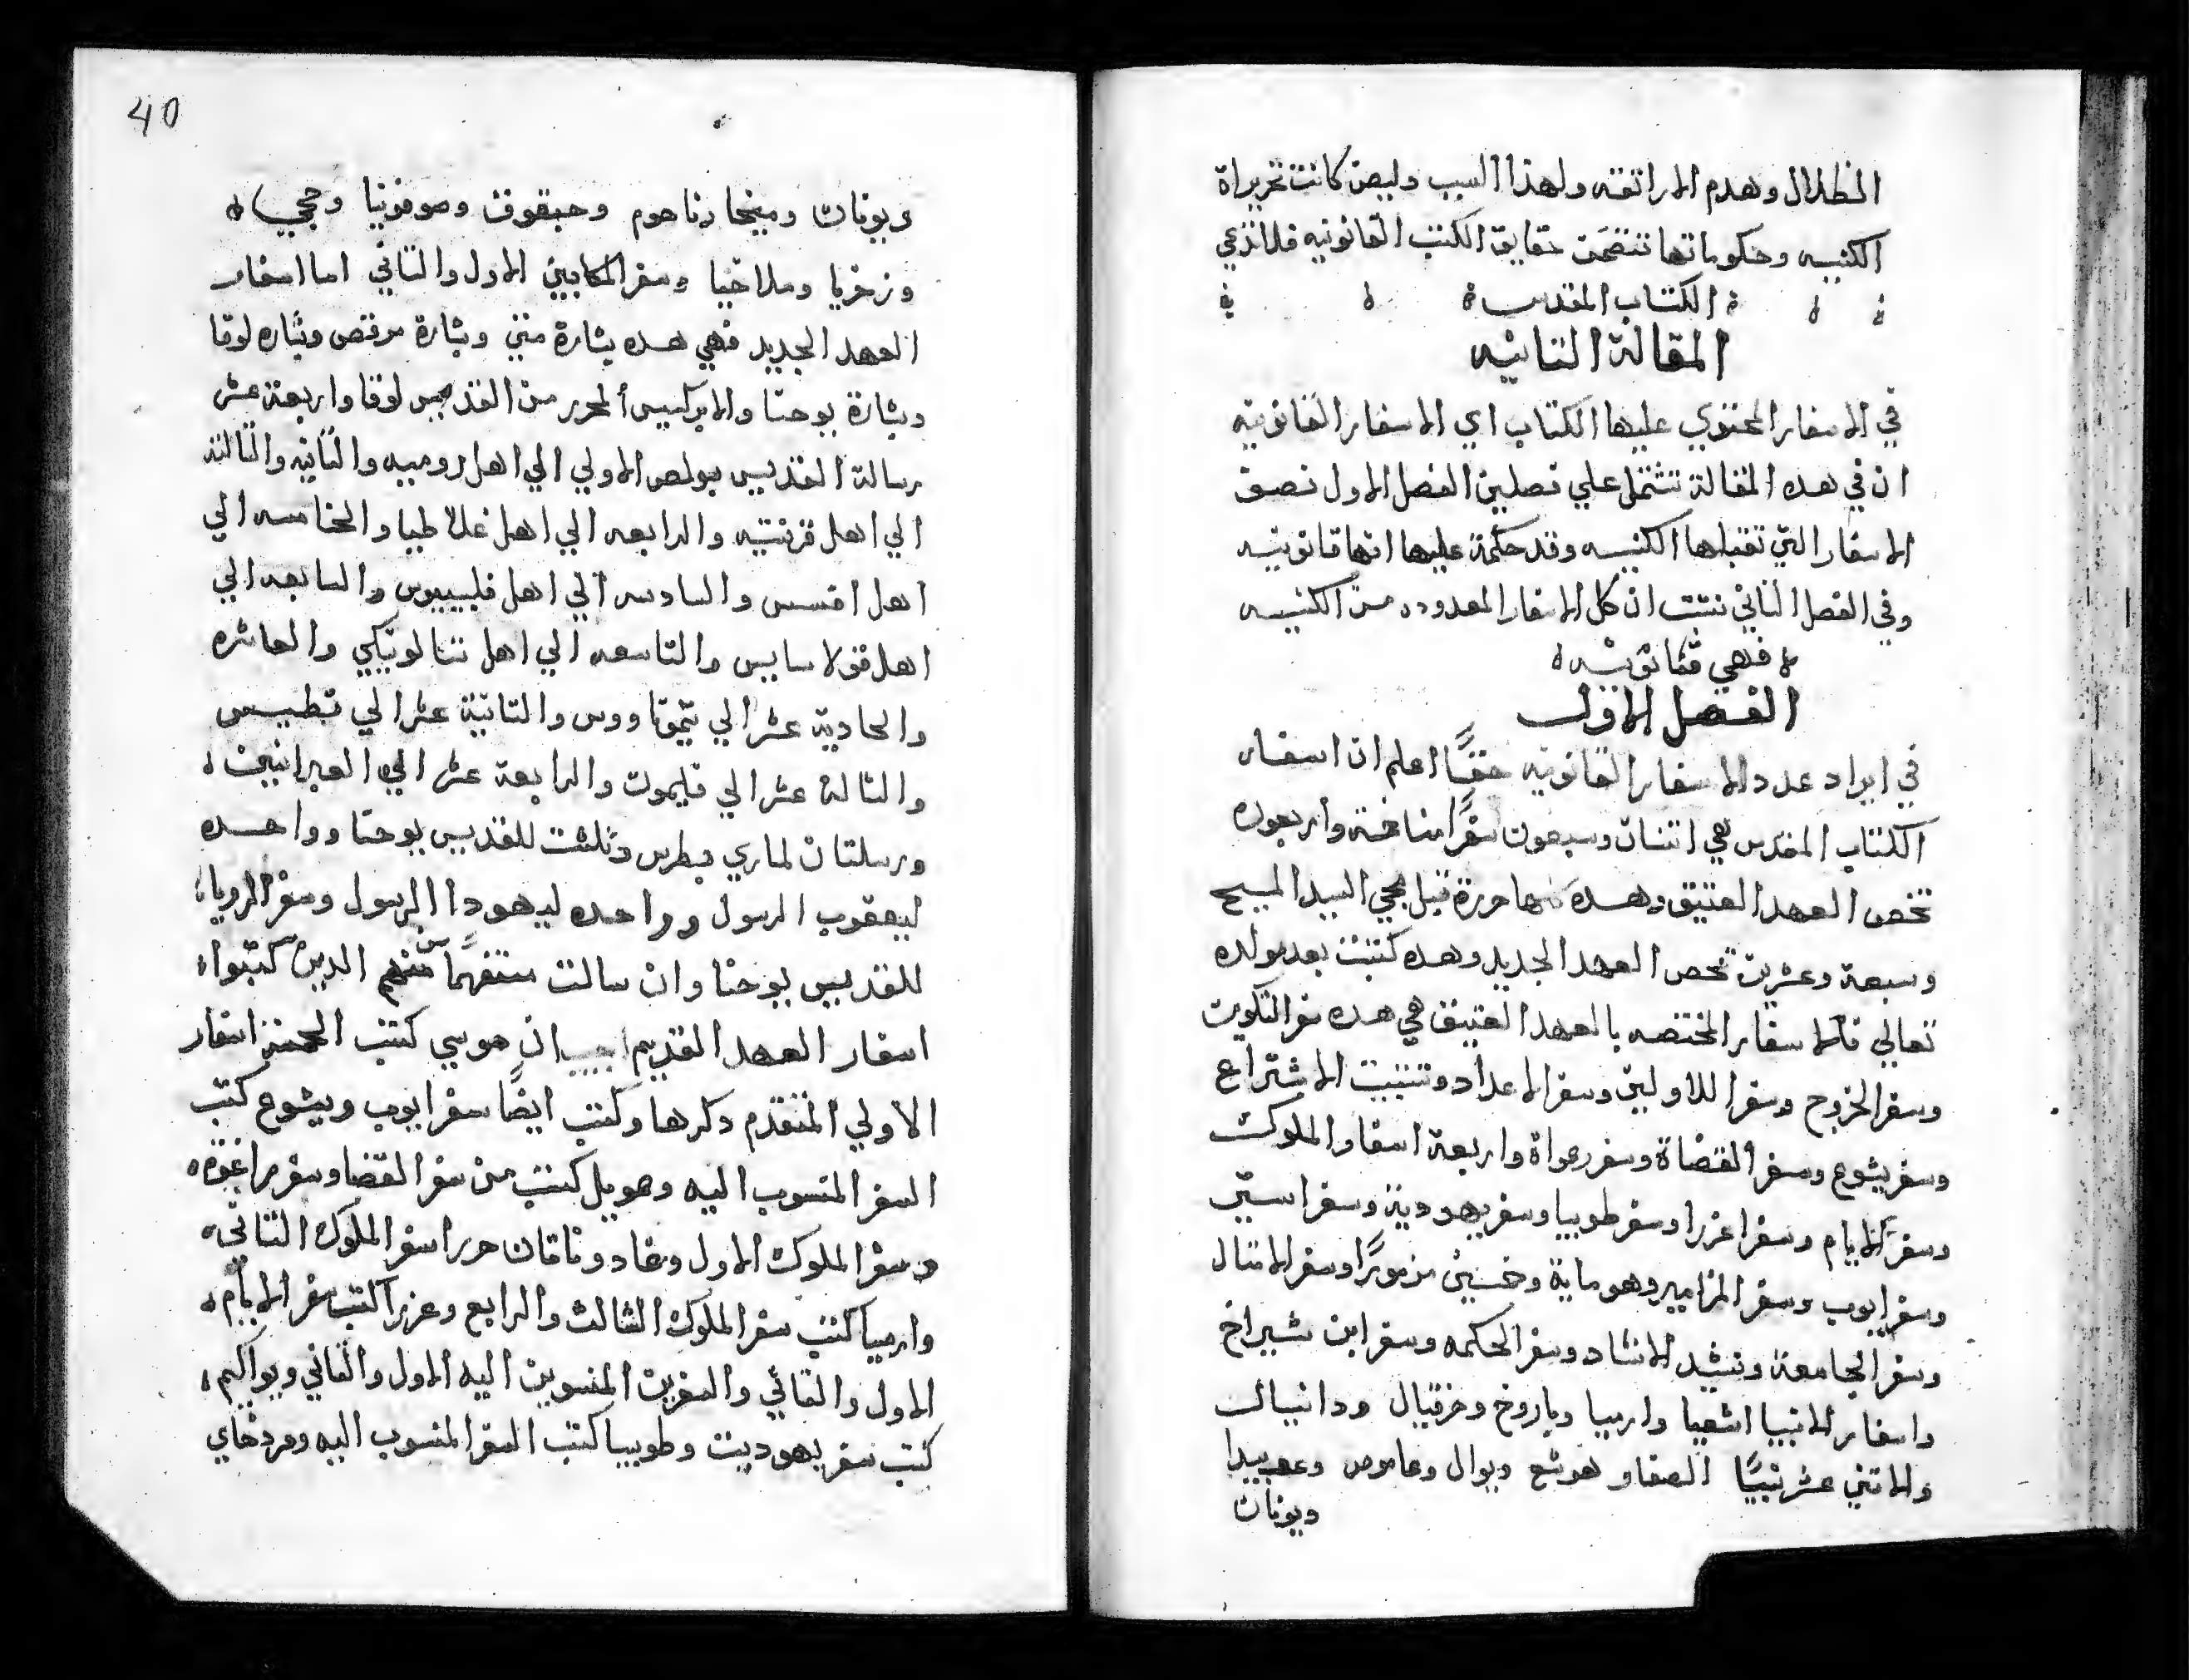 الظلال وهدم الهراتقه ولهذا السبب وليصن كانت تحريراة
الكنيسه وحكوماتها تتضمن حقايق الكتب القانونيه فلا تدعي
الكتاب المقدس
المقالة التانيه
في الاسفار المحتوي عليها الكتاب اي الاسفار القانونيه
ان في هده المقالة تشتمل علي فصلين الفصل الاول نصف
الاسفار التي تقبلها الكنيسه وقد حكمة عليها انها قانونيه
وفي الفصل الثاني نتبت ان كل الاسفار المعدوده من الكنيسه
فهي قانونيه
الفصل الاول
في ايراد عدد الاسفار القانونيه حقًّا اعلم ان اسفار
الكتاب المقدس هي اتنان وسبعون سفرًا منا خمسة واربعون
تخص العهد العتيق وهده كلها حررة قبل مجي السيد المسيح
وسبعة وعشرين تخص العهد الجديد وهده كتبت بعد مولده
تعالي فالاسفار المختصه بالعهد العتيق هي هده سفر التكوين
وسفر الخروج وسفر اللاوليين وسفر الاعداد وتتنيت الاشتراع
وسفر يشوع وسفر القضاة وسفر رعواة واربعة اسفار الملوك
وسفر الايام وسفر اعزرا وسفر طوبيا وسفر يهوديت وسفر استير
وسفر ايوب وسفر المزامير وهو ماية وخمسين مزمورًا وسفر الامتال
وسفر الجامعة ونشيد الانشاد وسفر الحكمه وسفر ابن شيراخ
واسفار الانبيا اشعيا وارميا وباروخ وحزقيال ودانيال
والاتني عشر نبيًا الصغار هوشع ويوال وعاموص وعوبيديا
ويونان
40
ويونان وميخا وناحوم وحبقوق وصوفونيا وحجي
وزخريا وملاخيا وسفر المكابين الاول والتاني اما اسفار
العهد الجديد فهي هده بشارة متي وبشارة مرقص وبشاره لوقا
وبشارة يوحنا والابركسيس المحرر من القديس لوقا واربعة عشر
رسالة القديس بولص الاولي الي اهل روميه والثانيه والثالثه
الي اهل قرنتيه والرابعه الي اهل غلاطيا والخامسه الي
اهل افسس والسادسه الي اهل فليبيوس والسابعه الي
اهل قولاسايس والتاسعه الي اهل تسالونيكي والعاشره
والحادية عشر الي تيموتاووس والتانية عشر الي تطيس
والتالة عشر الي فليمون والرابعة عشر الي العبرانيين
ورسلتان لماري بطرس وثلثت للقديس يوحنا وواحده
ليعقوب الرسول وواحده ليهودا الرسول وسفر الرويا
للقديس يوحنا وان سالت مستفهمًا من هم الدين كتبوا
اسفار العهد القديم اجيب ان موسي كتب الخمسة اسفار
الاولي المتقدم دكرها وكتب ايضًا سفر ايوب ويشوع كتب
السفر المنسوب اليه وصمويل كتب من سفر القضا وسفر راعوة
وسفر الملوك الاول وغاد وناتان حررا سفر الملوك التاني
وارميا كتب سفر الملوك الثالث والرابع وعزرا كتب سفر الايام
الاول والتاني والسفرين المنسوبين اليه الاول والثاني ويواكيم
كتب سفر يهوديت وطوبيا كتب السفر المنسوب اليه ومردخاي